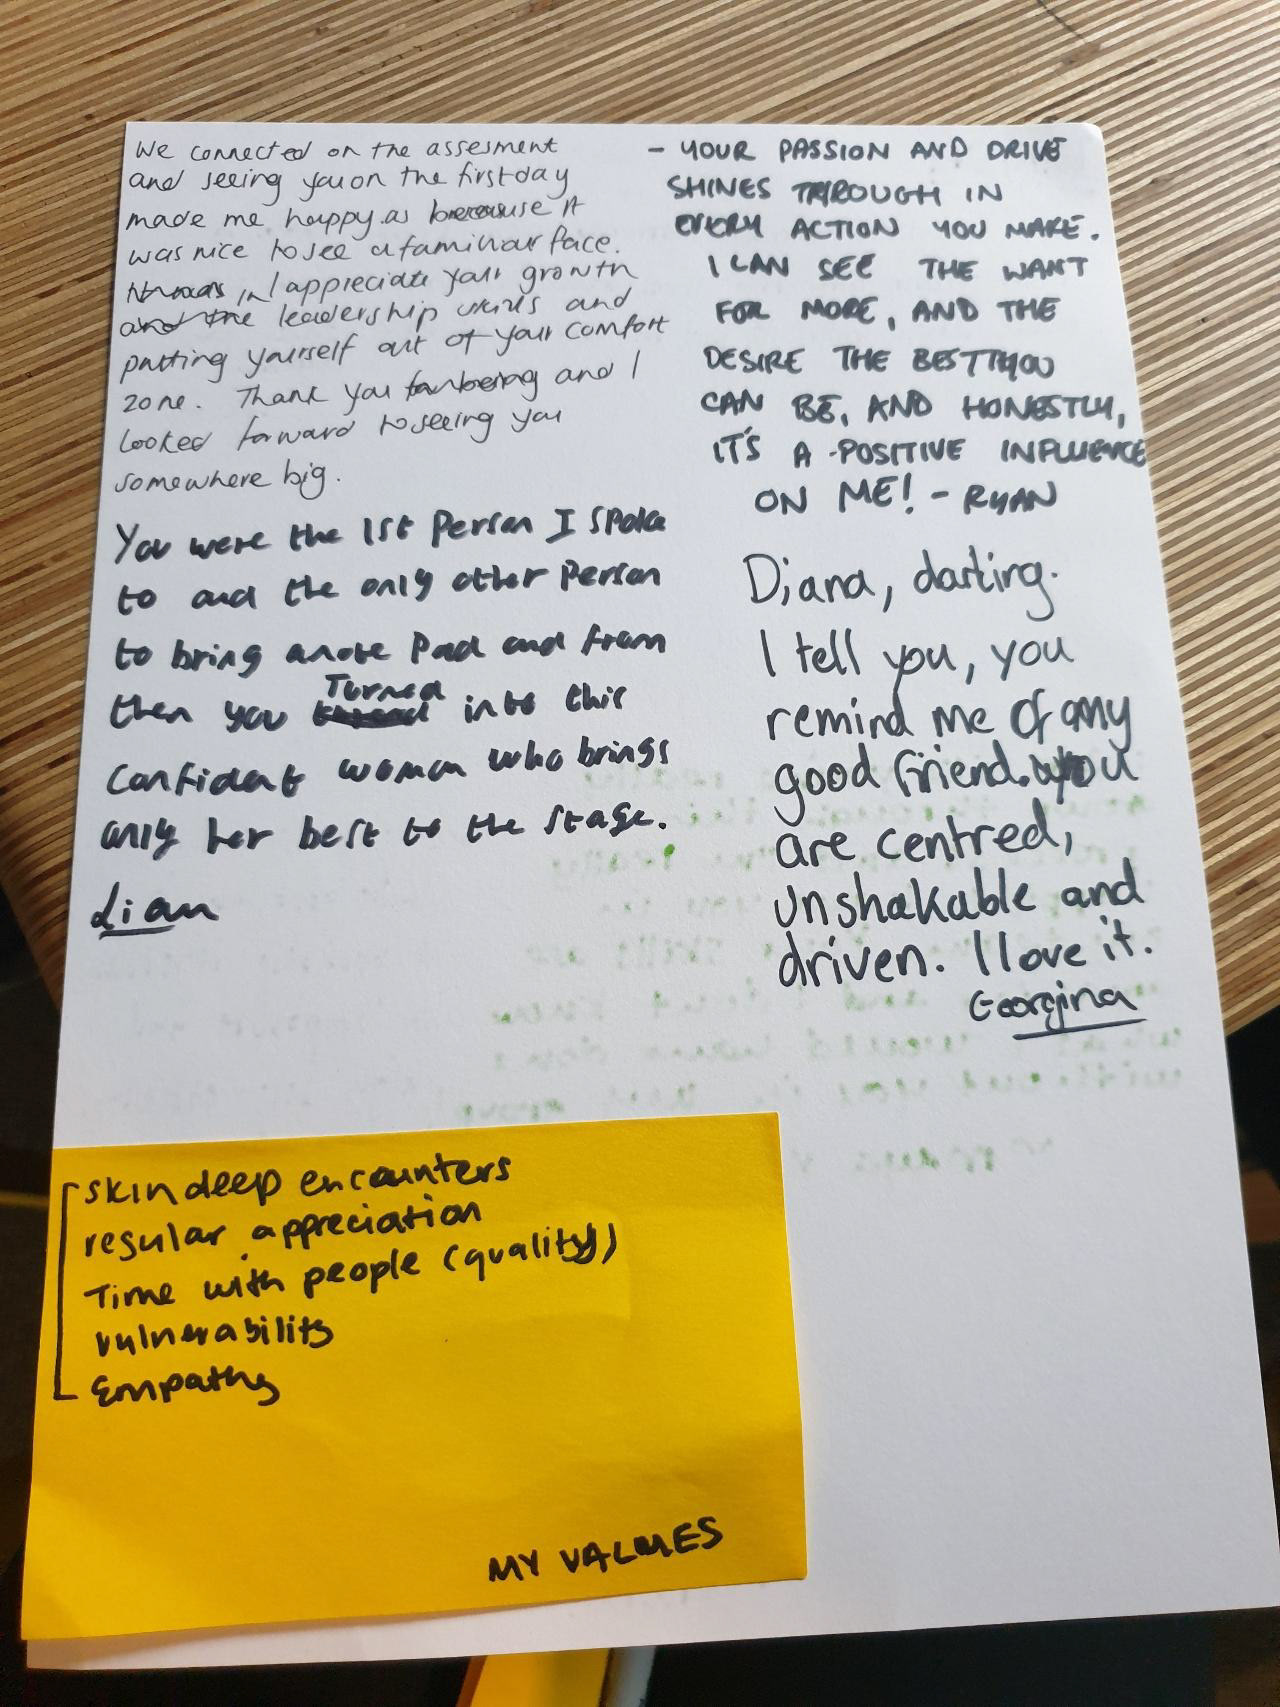 We connected on the assesment
and seeing you on the first day
made me happy as because it
was nice to see a familiar face.
I appreciate your growth
and the leadership skills and
putting yourself out of your comfort
zone. Thank you and I
looked forward to seeing you
somewhere big.
You were the 1st Person I spoke
to and the only other Person
to bring a note Pad and from
then you Turned into this
confident woman who brings
only her best to the stage.
Liam
- YOUR PASSION AND DRIVE
SHINES THROUGH IN
EVERY ACTION YOU MAKE.
I CAN SEE THE WANT
FOR MORE, AND THE
DESIRE THE BEST YOU
CAN BE, AND HONESTLY,
IT'S A POSITIVE INFLUENCE
ON ME! - RYAN
Diana, darling.
I tell you, you
remind me of my
good friend. you
are centred,
unshakable and
driven. I love it.
Georgina
skin deep encounters
regular appreciation
Time with people (quality)
vulnerability
Empathy
MY VALUES